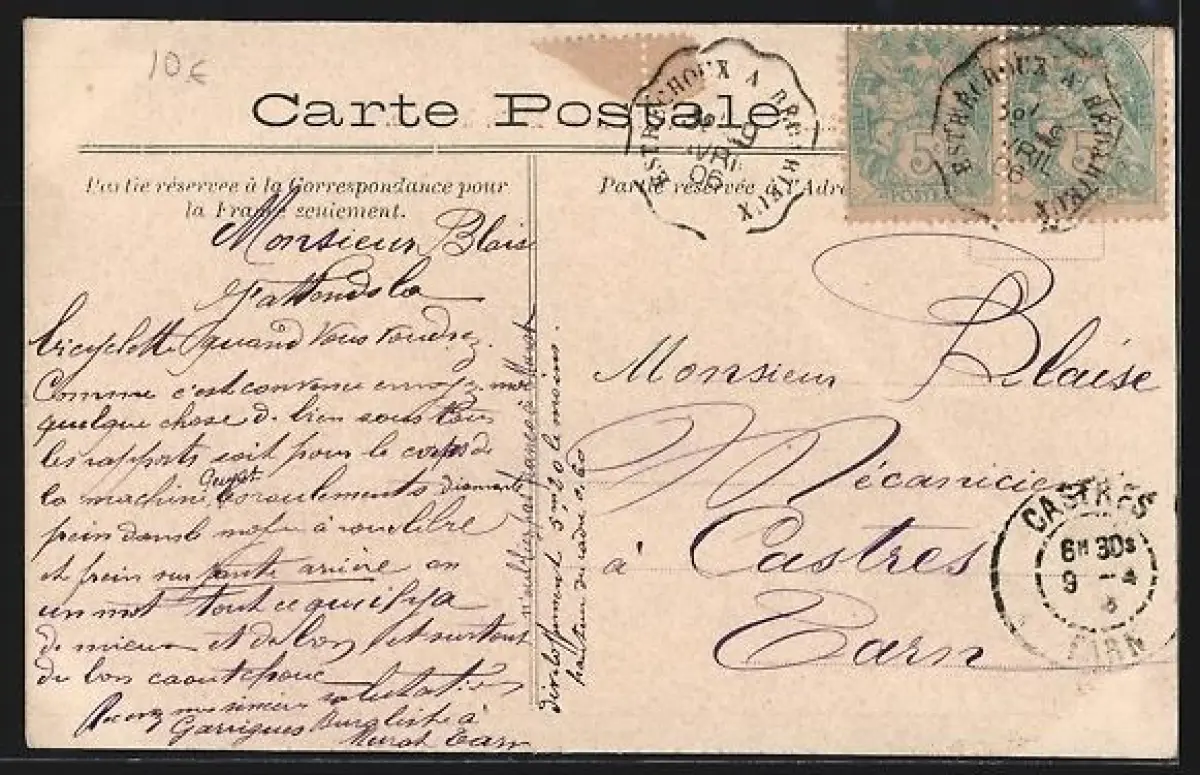 10€
Carte Postale
Partie réservée à la Correspondance pour
la France seulement.
Partie réservée à l'Adre
ESTRECHOUX A BÉDARIEUX
9
AVRIL
06
ESTRECHOUX A BÉDARIEUX
AVRIL
06
5
POSTES
Monsieur Blaise
J'attends la
bicyclette quand vous voudrez.
Comme c'est convenu envoyez moi
quelque chose de bien sous tous
les rapports soit pour le corps de
la machine roulements diamant
frein dans le moyeu à roue libre
et frein sur jante arrière en
un mot tout ce qu'il y a
de mieux et de bon et surtout
de bon caoutchouc
Recevez mes sincères salutations
Garrigues Buraliste à
Murat Tarn
n'oubliez pas
développement 5m20 le moins
hauteur du cadre 0.60
Monsieur Blaise
Mécanicien
à Castres
Tarn
CASTRES
6H 30s
9 - 4
TARN